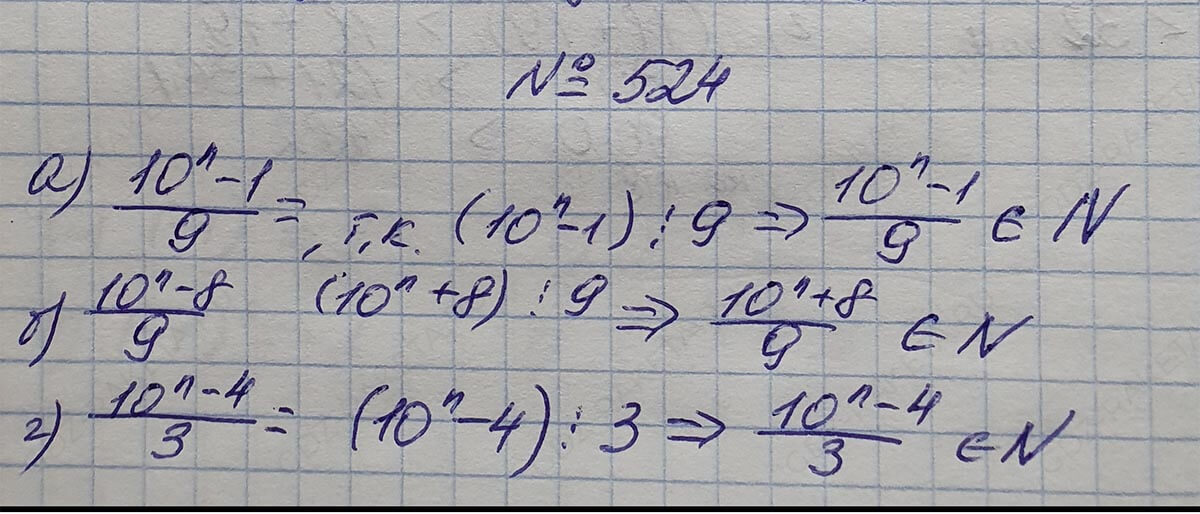 № 524
а) (10ⁿ-1)/9 =, т.к. (10ⁿ-1) ⋮ 9 ⇒ (10ⁿ-1)/9 ∈ N
б) (10ⁿ-8)/9 (10ⁿ+8) ⋮ 9 ⇒ (10ⁿ+8)/9 ∈ N
г) (10ⁿ-4)/3 = (10ⁿ-4) ⋮ 3 ⇒ (10ⁿ-4)/3 ∈ N